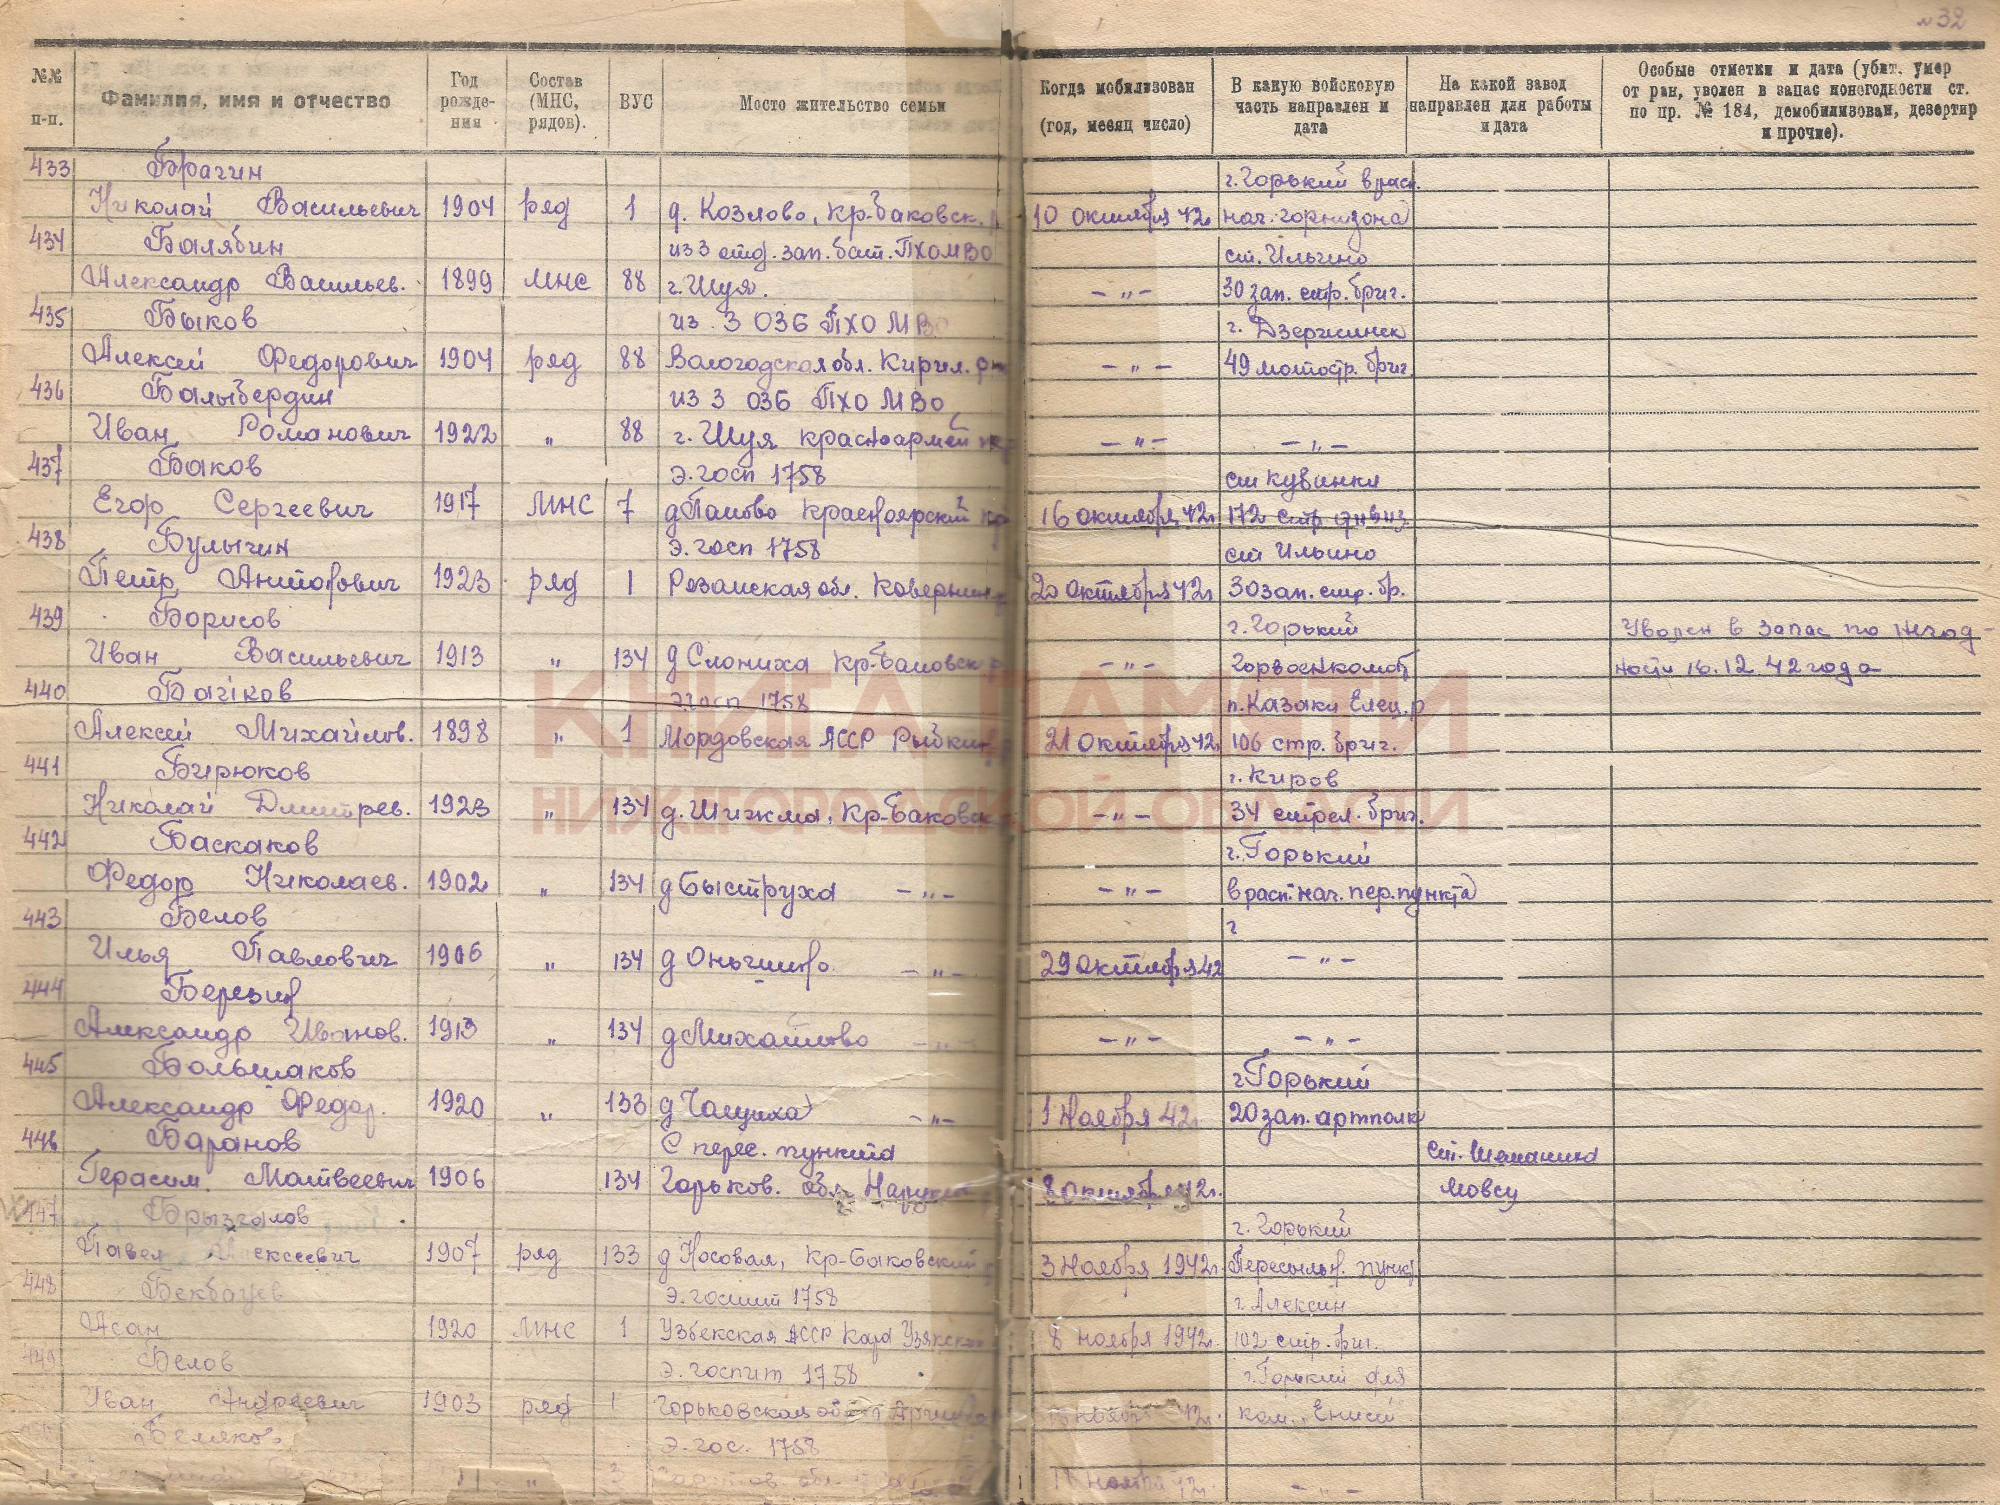 № 32
№№ п-п.
Фамилия, имя и отчество
Год рожде-ния
Состав (МНС, рядов).
ВУС
Место жительство семьи
Когда мобилизован (год, месяц число)
В какую войсковую часть направлен и дата
На какой завод направлен для работы и дата
Особые отметки и дата (убит. умер от ран, уволен в запас поногодности ст. по пр. № 184, демобилизован, дезертир и прочие).
433 Брагин г. Горький в расп.
Николай Васильевич 1904 ряд 1 д. Козлово, Кр-Баковск. р 10 октября 42г нач. горнизона
434 Балябин из 3 отд. зап. бат. ПХО МВО ст. Ильино
Александр Васильев. 1899 МНС 88 г. Шуя. – „ – 30 зап. стр. бриг.
435 Быков из 3 ОЗБ ПХО МВО г. Дзержинск
Алексей Федорович 1904 ряд 88 Вологодская обл. Кирил. – „ – 49 мотостр. бриг.
436 Балыбердин из 3 ОЗБ ПХО МВО
Иван Романович 1922 „ 88 г. Шуя красноармей – „ – – „ –
437 Баков э. госп 1758 ст Кубинка
Егор Сергеевич 1917 МНС 7 д Паново Красноярский кр 16 октября 42г 172 стр дивиз.
438 Булыгин э. госп 1758 ст Ильино
Петр Антонович 1923 ряд 1 Розанская обл. 20 октября 42г 30 зап. стр. бр.
439 Борисов г. Горький Уволен в запас по негод-
Иван Васильевич 1913 „ 134 д Слониха Кр-Баковск р – „ – Горвоенкомат ности 16.12.42 года
440 Бачков э госп 1758 п. Казаки Елец. р
Алексей Михайлов. 1898 „ 1 Мордовская АССР Рыбкин 21 октября 42г 106 стр. бриг.
441 Бирюков г. Киров
Николай Дмитрев. 1923 „ 134 д. Шижма, Кр-Баковск – „ – 34 стрел. бриг.
442 Баскаков г. Горький
Федор Николаев. 1902 „ 134 д Быструха – „ – – „ – в расп. нач. пер. пункта
443 Белов г
Илья Павлович 1906 „ 134 д – „ – 29 октября 42 – „ –
444 Березин
Александр Иванов. 1913 „ 134 д Михайлово – „ – – „ – – „ –
445 Большаков г Горький
Александр Федор. 1920 „ 133 д Чащиха – „ – 1 Ноября 42г 20 зап. артполк
446 Баранов С перес. пункта ст. Шеманиха
Герасим Матвеевич 1906 134 Горьков. обл. 8 октября 42г. Мовсу
447 Брызгалов г. Горький
Павел Алексеевич 1907 ряд 133 д Носовая, Кр-Баковский 3 Ноября 1942г. Пересыльн. пункт
448 Бекбауев э. госпит 1758 г. Алексин
Асан 1920 МНС 1 Узбекская АССР Кара 8 ноября 1942г. 102 стр. бриг.
449 Белов э. госпит 1758 г. Горький для
Иван Андреевич 1903 ряд 1 Горьковская обл ноября 42г. ком.
Беляков э. гос. 1758
„ 3 обл. ноября 42г. – „ –
КНИГА ПАМЯТИ
НИЖЕГОРОДСКОЙ ОБЛАСТИ